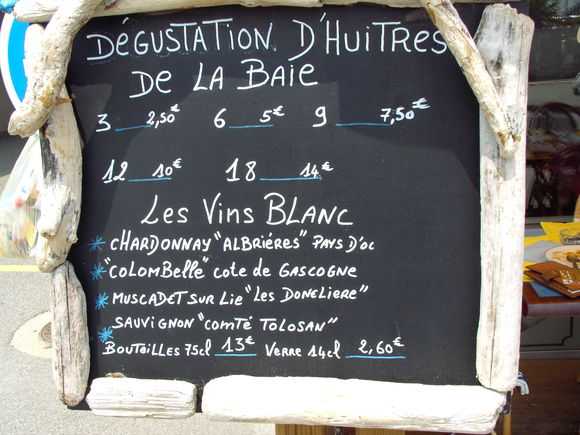 DÉGUSTATION D'HUITRES
DE LA BAIE
3 2,50€ 6 5€ 9 7,50€
12 10€ 18 14€
Les Vins BLANC
* CHARDONNAY "ALBRIÉRES" PAYS D'OC
* "COLOMBELLE" COTE DE GASCOGNE
* MUSCADET SUR LIE "LES DONELIERE"
* SAUVIGNON "COMTÉ TOLOSAN"
BOUTOILLES 75cl 13€ VERRE 14cl 2,60€